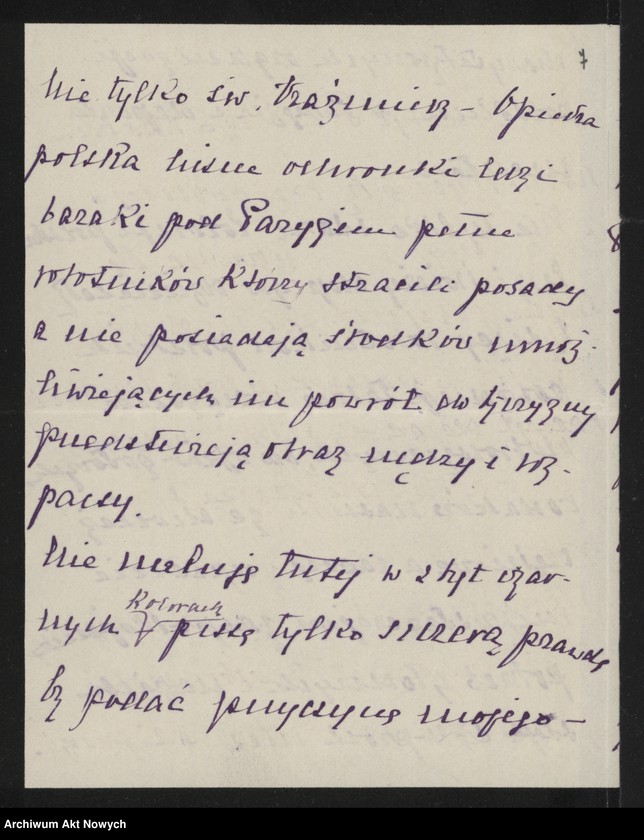 7
Nie tylko św. Kaźmierz – Opieka
polska liczne ochronki lecz i
baraki pod Paryżem pełne
robotników którzy stracili posady
a nie posiadają środków umoż-
liwiejących im powrót do ojczyzny
przedstawiają obraz nędzy i roz-
paczy.
Nie maluję tutej w zbyt czar-
nych kolorach piszę tylko szczerą prawdę
by podać przyczynę mojego –
Archiwum Akt Nowych